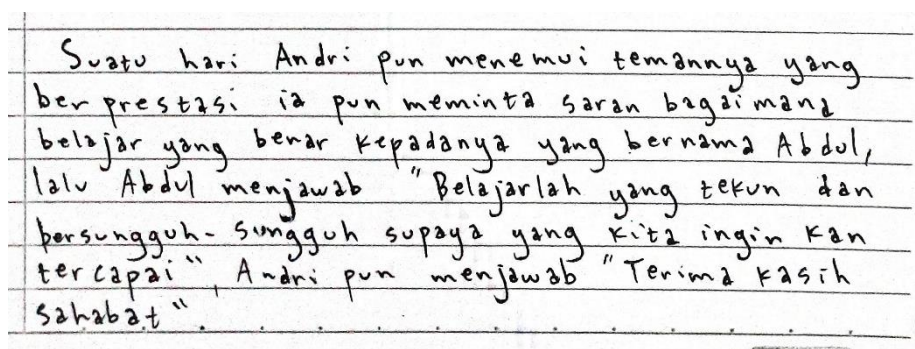 Suatu hari Andri pun menemui temannya yang
ber prestasi ia pun meminta saran bagaimana
belajar yang benar kepadanya yang bernama Abdul,
lalu Abdul menjawab "Belajarlah yang tekun dan
bersungguh-sungguh supaya yang kita ingin kan
ter capai", Andri pun menjawab "Terima kasih
sahabat".